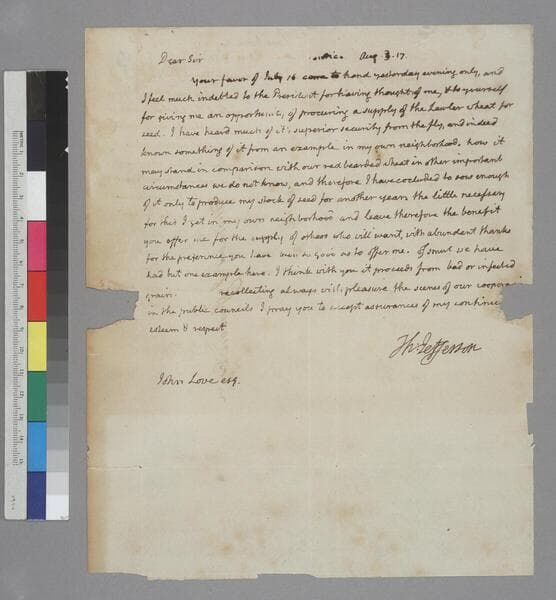 Dear Sir Aug. 3. 17.
Your favor of July 16 came to hand yesterday evening only, and
I feel much indebted to the President for having thought of me, & to yourself
for giving me an opportunity of procuring a supply of the Lawler wheat for
seed. I have heard much of it's superior security from the fly, and indeed
known something of it from an example in my own neighborhood. how it
may stand in comparison with our red bearded wheat in other important
circumstances we do not know, and therefore I have cocluded to sow enough
of it only to produce my stock of seed for another year. the little necessary
for this I get in my own neighborhood and leave therefore the benefit
you offer me for the supply of others who will want, with abundant thanks
for the preference you have been so good as to offer me. of smut we have
had but one example here. I think with you it proceeds from bad or infected
grain. recollecting always with pleasure the scenes of our cooperat
in the public councils I pray you to accept assurances of my continued
esteem & respect
Th: Jefferson
John Love esq.